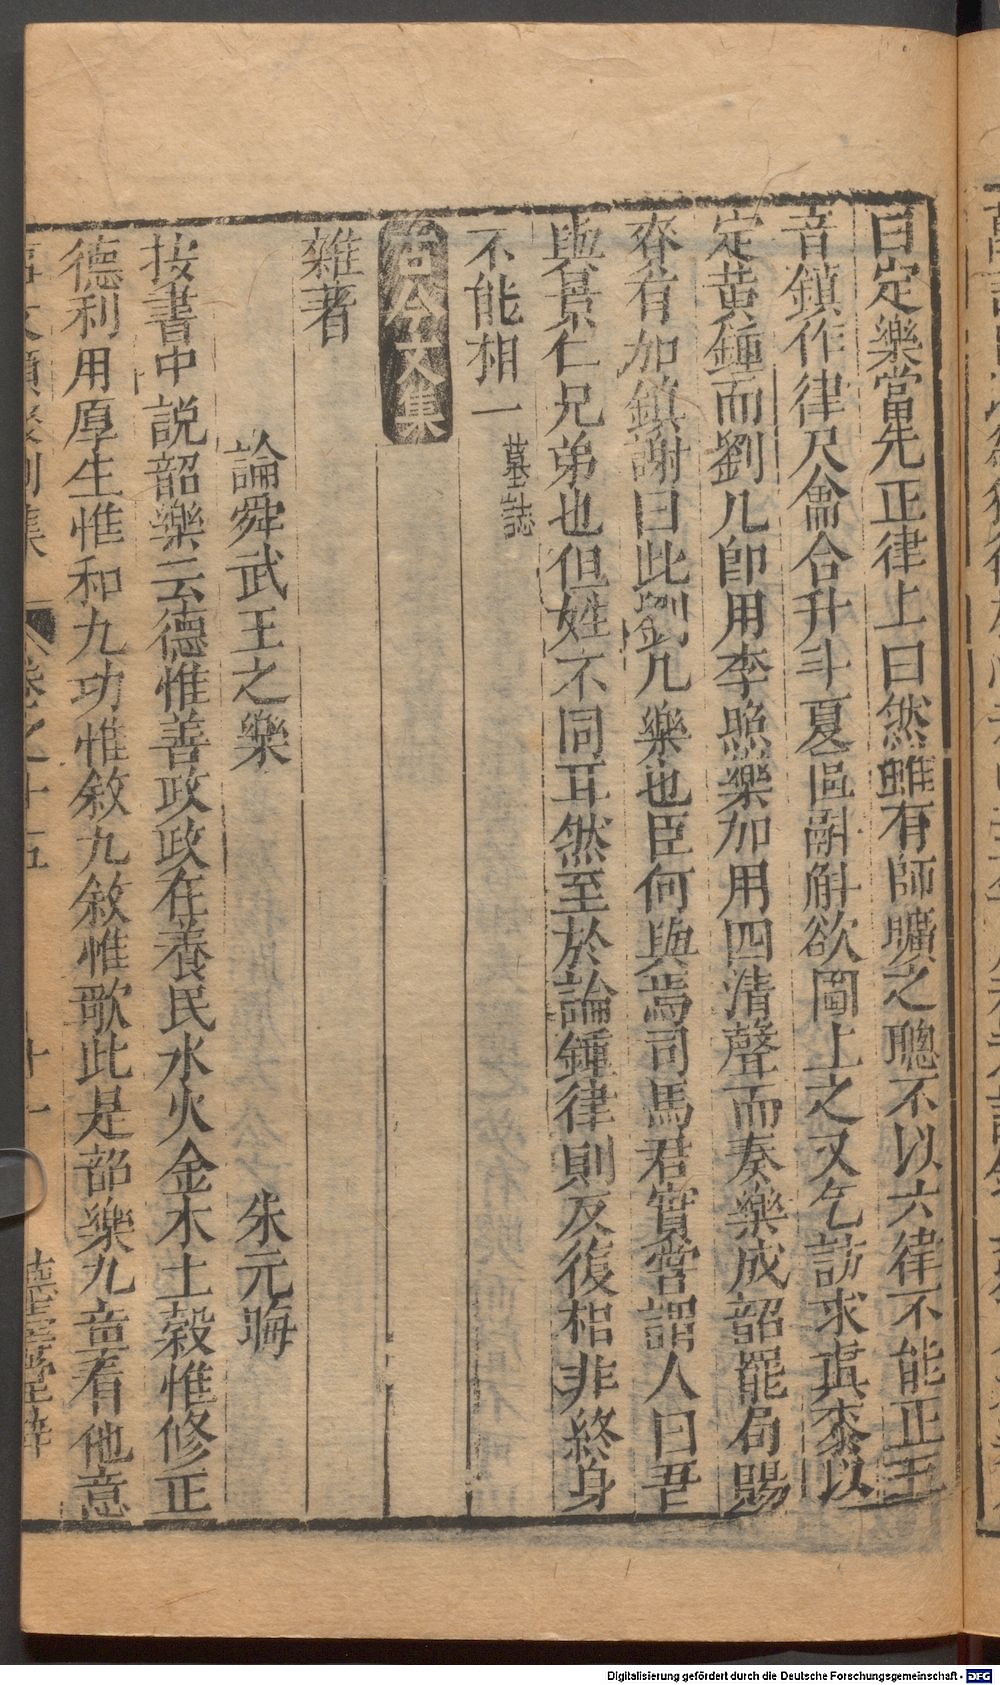 曰定樂當先正律上曰然雖有師曠之聰不以六律不能正五
音鎮作律尺龠合升斗䤥區鬴斛欲圖上之又乞訪求真黍以
定黃鍾而劉几卽用李照樂加用四清聲而奏樂成詔罷局賜
賚有加鎮謝曰此劉几樂也臣何與焉司馬君實嘗謂人曰吾
與景仁兄弟也但姓不同耳然至於論鍾律則反復相非終身
不能相一墓誌
古今文集
雜著
論舜武王之樂 朱元晦
按書中說韶樂云德惟善政政在養民水火金木土穀惟修正
德利用厚生惟和九功惟敘九敘惟歌此是韶樂九章看他意
事文類聚別集 卷之十五 十一 德壽堂梓
Digitalisierung gefördert durch die Deutsche Forschungsgemeinschaft - DFG